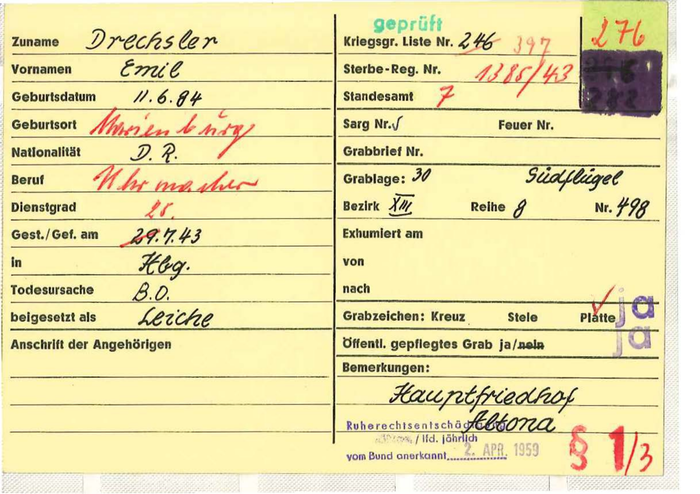 Zuname Drechsler
Vornamen Emil
Geburtsdatum 11.6.84
Geburtsort Marienburg
Nationalität D. R.
Beruf Uhrmacher
Dienstgrad
25.
Gest./Gef. am 29.7.43
in Hbg.
Todesursache B.O.
beigesetzt als Leiche
Anschrift der Angehörigen
geprüft
Kriegsgr. Liste Nr. 246 397
276
Sterbe-Reg. Nr. 1385/43
Standesamt 7
282
Sarg Nr. Feuer Nr.
Grabbrief Nr.
Grablage: 30 Südflügel
Bezirk XIII Reihe 8 Nr. 498
Exhumiert am
von
nach
Grabzeichen: Kreuz Stele Platte ja
Öffentl. gepflegtes Grab ja/nein ja
Bemerkungen:
Hauptfriedhof
Altona
Ruherechtsentschädigung
/ lfd. jährlich
vom Bund anerkannt 2. APR. 1959
§ 1/3